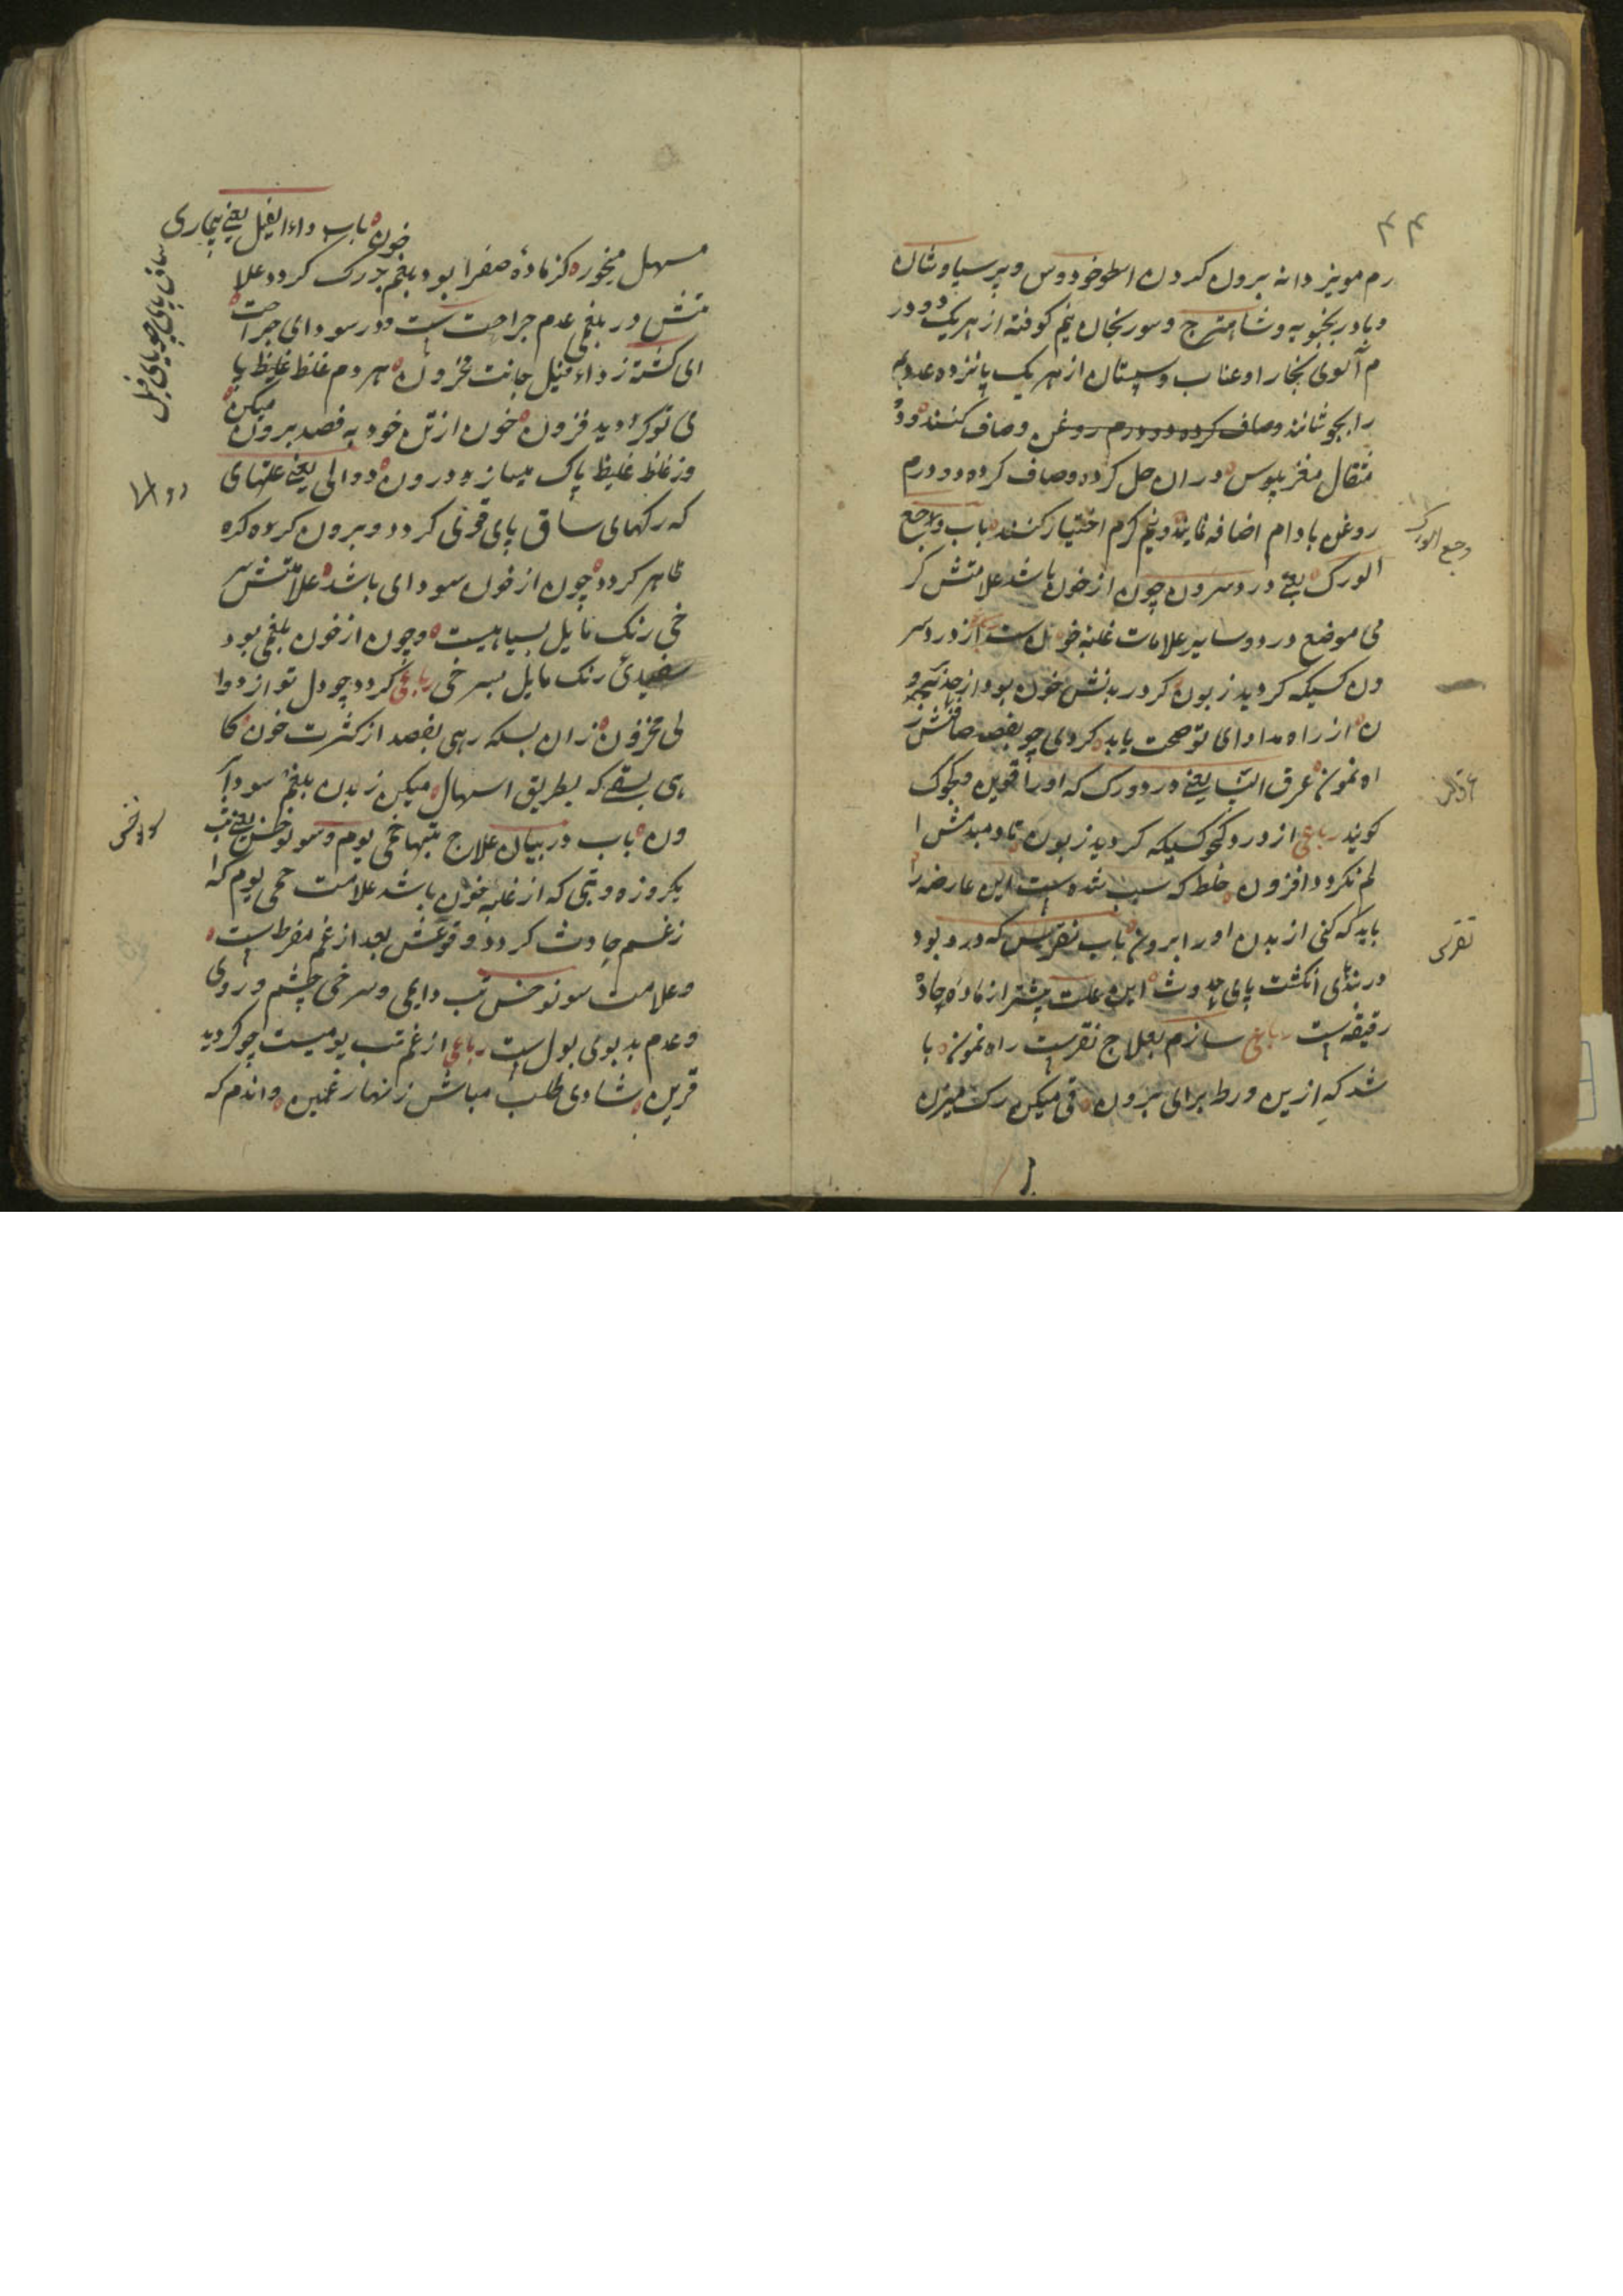 ۴۴
رم مویز دانه برون کردن اسطوخودوس و پرسیاوشان
و بادرنجبویه و شاهترج و سورنجان نیم کوفته از هر یک دو در
م آلوی بخارا و عناب و سپستان از هر یک پانزده عدد
را بجوشانند وصاف کرده دو درم روغن وصاف کنند و دو
مثقال مغز پلوس دران حل کرده وصاف کرده دو درم
روغن بادام اضافه نمایند و نیم گرم اختیار کنند باب وجع
الورک یعنی درد سرون چون از خون باشد علامتش گر
می موضع درد و سایر علامات غلبه خونست از درد سر
ون کسیکه گردید زبون گر در بدنش خون بود از
ن از راه مداوای تو صحت یابد گردی چو بفصد صافنش ر
اه نمون عرق النسا یعنی درد ورک که او را
گویند رباعی از درد کسیکه گردید زبون تا دمبدمش ا
لم نگردد افزون خلط که سبب شدست این عارضه را
باید که کنی از بدن او را برون باب نقرس که درد بود
در بندهای انگشت پای حدوث این علت بیشتر از ماده حاده
رقیقه است رباعی سازم بعلاج نقرست راه نمون با
شد که ازین ورط برای برون قی میکن رگ میزن
وجع الورک
عرق النسا
نقرس
مسهل میخور کز ماده صفرا بود بلغم بزرک کردد علا
خون باب داء الفیل یعنی بیماری
ساق پای چو پای فیل
متش در بلغمی عدم جراحت است و در سودای جراحت
ای گشته ز داء فیل جانت محزون هر دم غلظ غلیظ پا
ی تو گردید فزون خون از تن خود به فصد برون میکن
وز غلظ غلیظ پاک میساز درون دوالی یعنی علتهای
که رکهای ساق پای قوی گردد و برون کره کره
ظاهر گردد چون از خون سودای باشد علامتش سر
خی رنک مایل بسیاهیست و چون از خون بلغمی بود
سفیدی رنک مایل بسرخی رباعی گردد چو دل تو از دوا
لی محزون زان بسکه رهی بفصد از کثرت خون کا
هی بسقی که بطریق اسهال میکن ز بدن بلغم سودا بر
ون باب در بیان علاج تبها حمی یوم و سونوخس یعنی تب
یکروزه و تبی که از غلبه خون باشد علامت حمی یوم که ا
ز غم حادث گردد وقوعش بعد از غم مفرط است
و علامت سونوخس تب دایمی و سرخی چشم و روی
و عدم بدبوی بول است رباعی از غم تب یومیست چو گردید
قرین شادی طلب مباش زنهار غمین و اندم که
دوالی
سونوخس